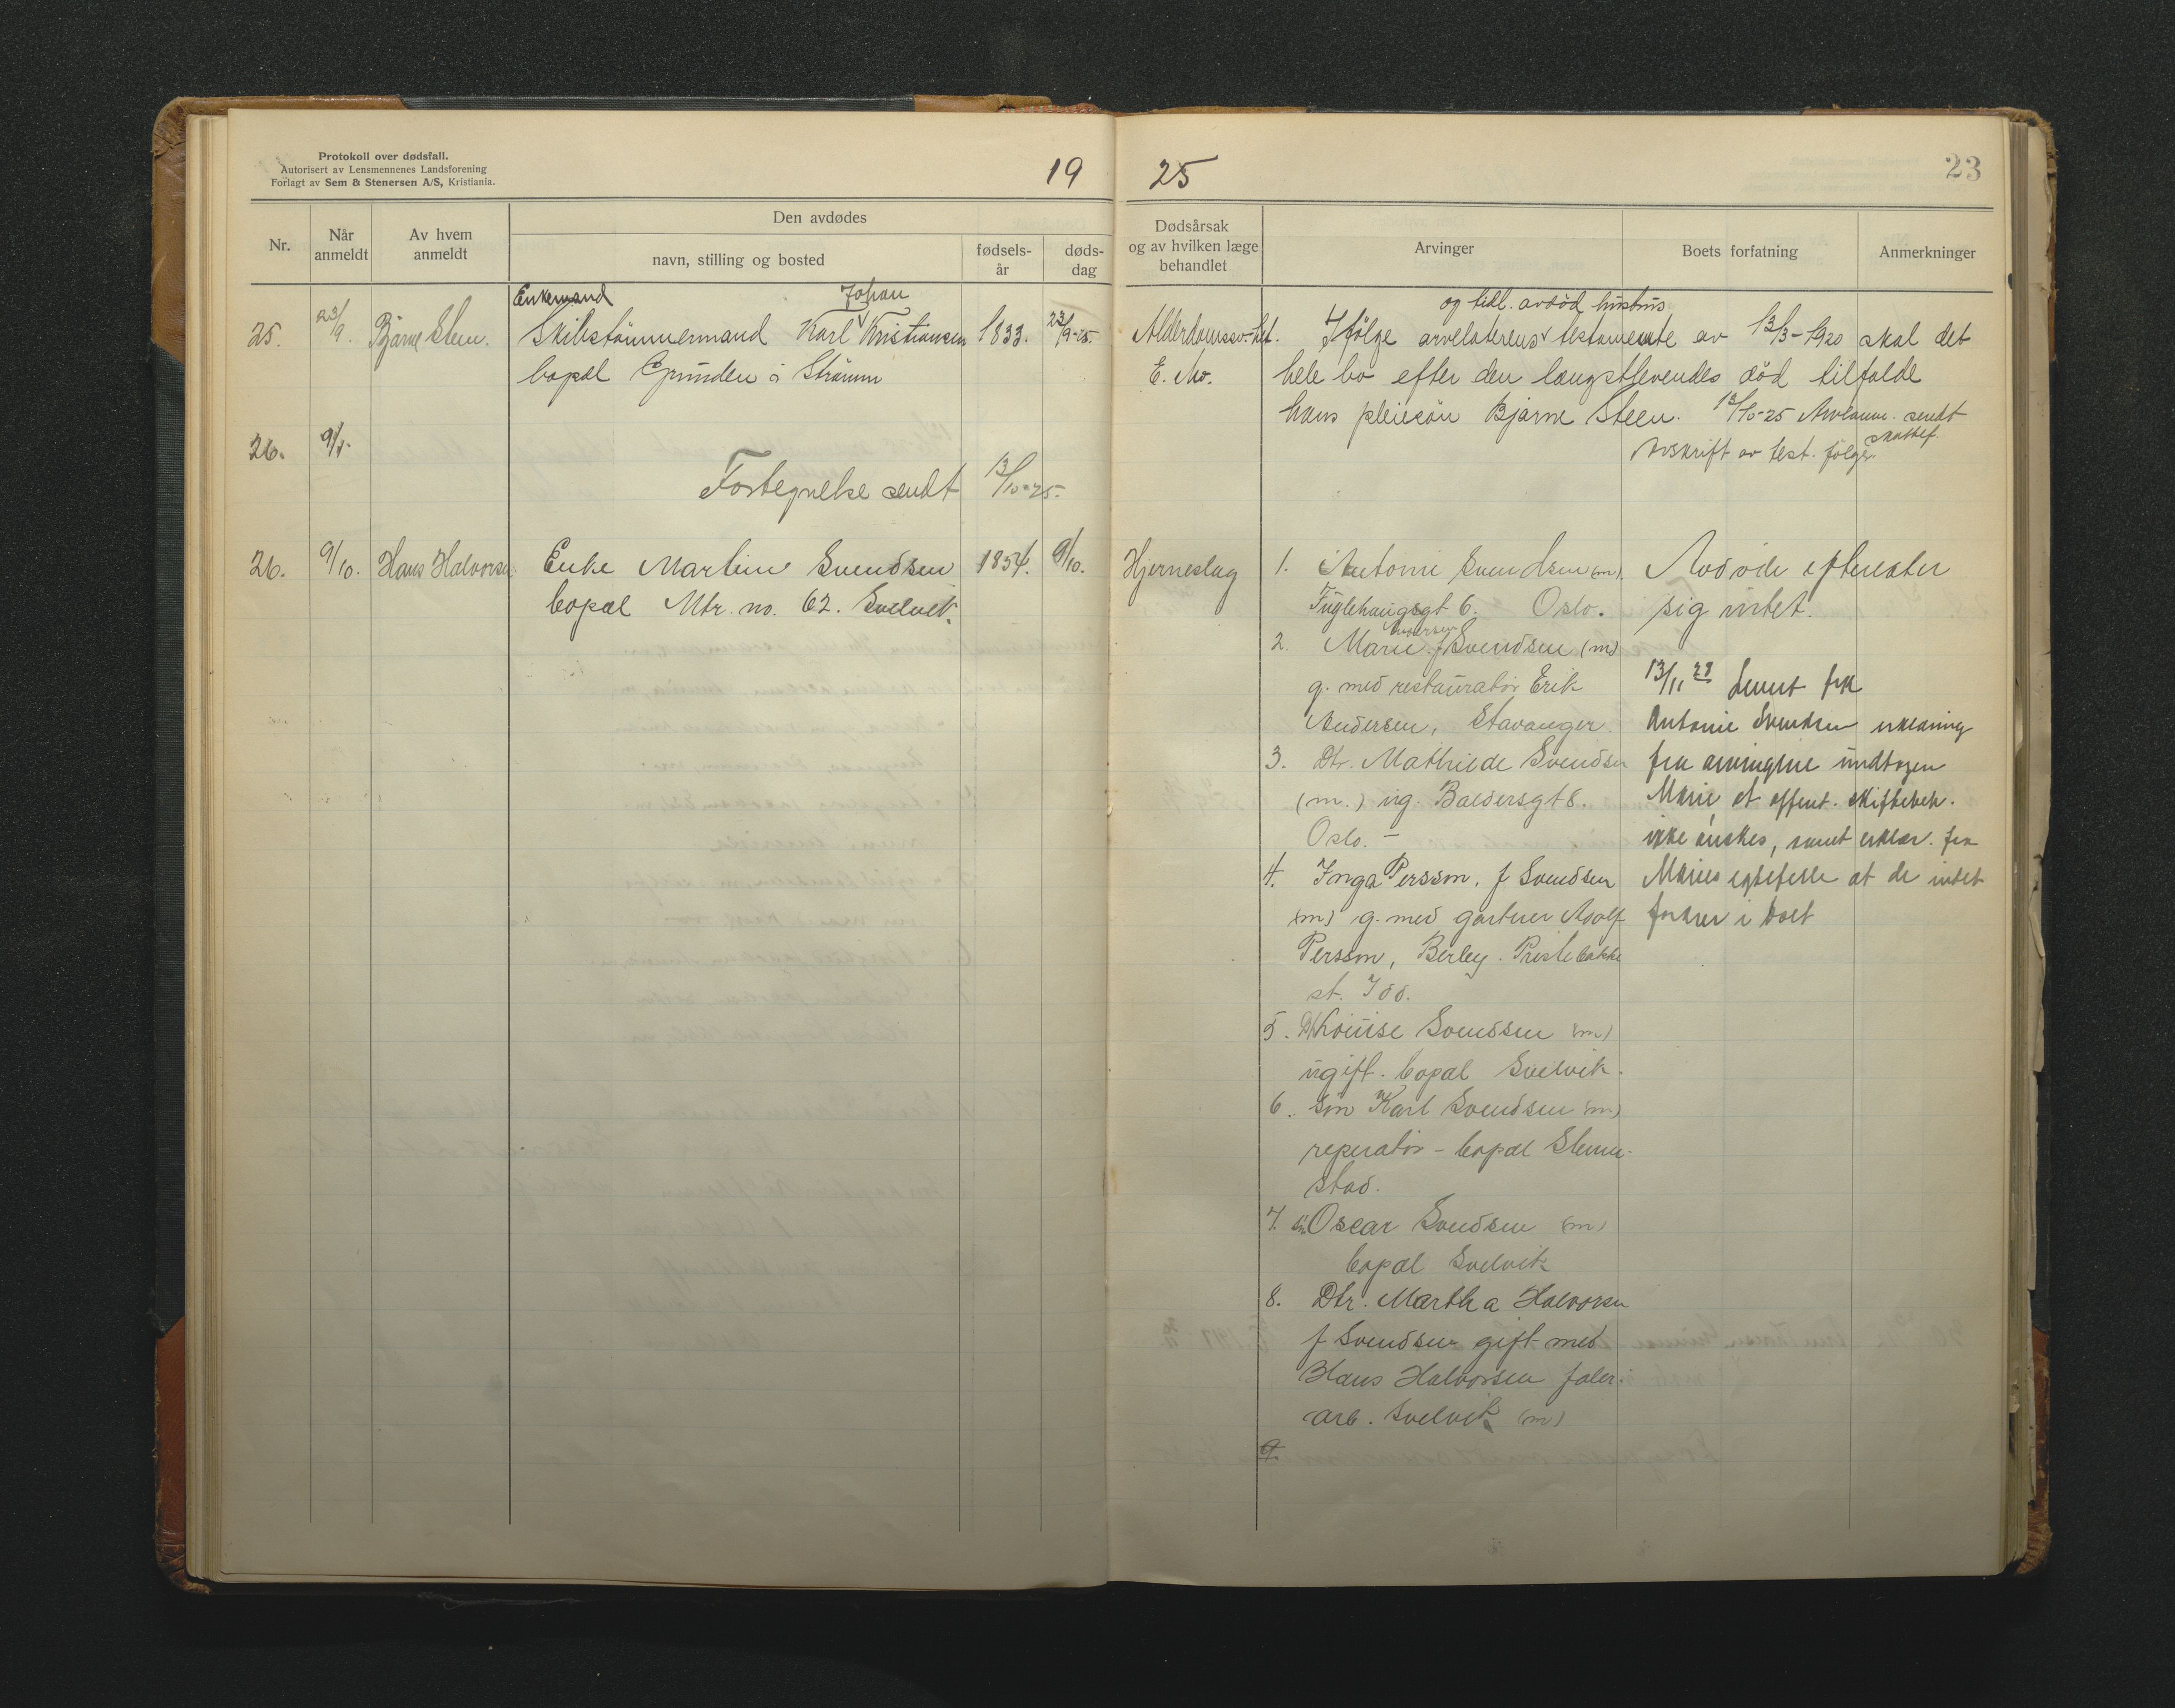 Protokoll over dødsfall.
Autorisert av Lensmennenes Landsforening
Forlagt av Sem & Stenersen A/S, Kristiania.
19
Nr.
Når anmeldt
Av hvem anmeldt
Den avdødes
navn, stilling og bosted
fødsels-år
døds-dag
25. 23/9. Bjarne Steen. Enkemand
Skibstømmermand Karl Johan Kristiansen 1833. 23/9-25.
bopæl Grunden i Strømm
26. 9/
Fortegnelse sendt 13/10-25.
26. 9/10. Hans Halvorsen Enke Martine Svendsen 1854. 9/10.
bopæl Mtr. no. 62. Svelvik.
25
23
Dødsårsak
og av hvilken læge
behandlet
Arvinger
Boets forfatning
Anmerkninger
og tidl. avdød hustrus
Alderdomssv.het. Ifølge arvelaterens testamente av 13/3-1920 skal det
E. Mo. hele bo efter den længstlevendes død tilfalde
hans pleiesøn Bjarne Steen. 13/10-25 sendt
skattef.
Avskrift av test. følger.
Hjerneslag 1. Antonie Svendsen (m).
Fuglehauggt 6. Oslo.
Andersen
2. Marie f Svendsen (m)
g. med restauratør Erik
Andersen, Stavanger.
3. Dtr. Mathilde Svendsen
(m.) ug. Baldersgt 8.
Oslo. –
4. Inga Persson, f Svendsen
(m) g. med gartner Adolf
Persson, Berby. Prestebakke
st. Idd.
5. Dtr Louise Svendsen (m)
ugift. bopæl Svelvik.
6. Søn Karl Svendsen (m)
reperatør – bopæl Slemme-
stad.
7. sn. Oscar Svendsen (m)
bopæl Svelvik
8. Dtr. Martha Halvorsen
f Svendsen gift med
Hans Halvorsen fabr.
arb. Svelvik (m)
9.
Avdøde efterlater
sig intet.
13/11 Levert fra
Antonie Svendsen erklæring
fra arvingene undtagen
Marie, at offent. skiftebeh.
ikke ønskes, samt erklær. fra
Maries egtefelle at de intet
fordrer i boet